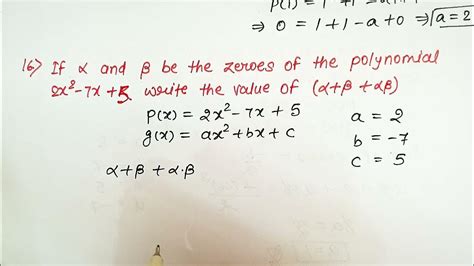 ⇒ 0 = 1+1-a+0 ⇒ a=2
16⟩ If α and β be the zeroes of the polynomial
2x²-7x+5. write the value of (α+β+αβ)
P(x) = 2x²-7x+5
g(x) = ax²+bx+c
a = 2
b = -7
c = 5
α+β+α.β